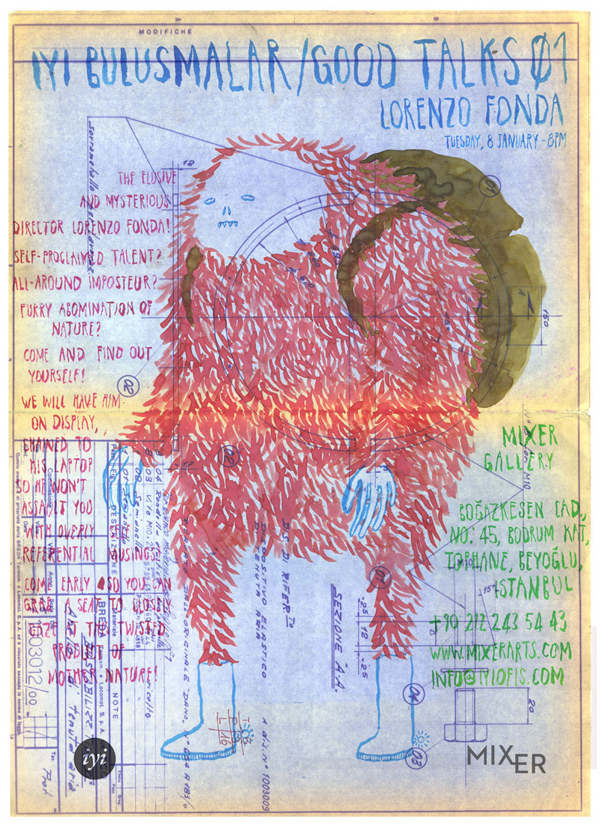 MODIFICHE
IYI BULUSMALAR/GOOD TALKS Ø1
LORENZO FONDA
TUESDAY, 8 JANUARY - 8PM
THE ELUSIVE
AND MYSTERIOUS
DIRECTOR LORENZO FONDA!
SELF-PROCLAIMED TALENT?
ALL-AROUND IMPOSTEUR?
FURRY ABOMINATION OF
NATURE?
COME AND FIND OUT
YOURSELF!
WE WILL HAVE HIM
ON DISPLAY,
CHAINED TO
HIS LAPTOP
SO HE WON'T
ASSAULT YOU
WITH OVERLY
REFERENTIAL MUSINGS.
COME EARLY SO YOU CAN
GRAB A SEAT TO CLOSELY
GAZE AT THE TWISTED
PRODUCT OF
MOTHER NATURE!
MIXER
GALLERY
BOĞAZKESEN CAD,
NO. 45, BODRUM KAT,
TOPHANE, BEYOĞLU,
ISTANBUL
+90 212 243 54 43
WWW.MIXERARTS.COM
INFO@IYIOFIS.COM
DIS. DI RIFER.TO
DISPOSITIVO ELASTICO
SEZIONE A.A.
1003012/00
NOTE
160
20
02
04
03
iyi
MIXER